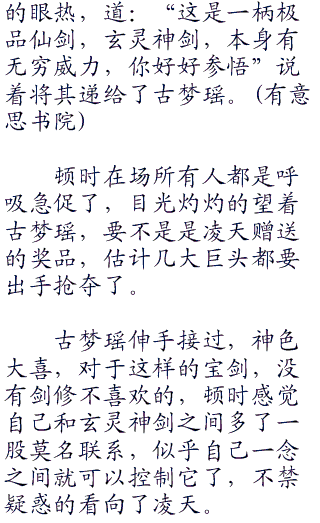 的眼热，道：“这是一柄极
品仙剑，玄灵神剑，本身有
无穷威力，你好好参悟”说
着将其递给了古梦瑶。(有意
思书院)
顿时在场所有人都是呼
吸急促了，目光灼灼的望着
古梦瑶，要不是是凌天赠送
的奖品，估计几大巨头都要
出手抢夺了。
古梦瑶伸手接过，神色
大喜，对于这样的宝剑，没
有剑修不喜欢的，顿时感觉
自己和玄灵神剑之间多了一
股莫名联系，似乎自己一念
之间就可以控制它了，不禁
疑惑的看向了凌天。